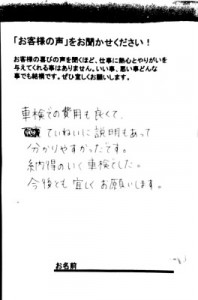 「お客様の声」をお聞かせください！
お客様の喜びの声を聞くほど、仕事に熱心とやりがいを
与えてくれる事はありません。いい事、悪い事どんな
事でも結構です。ぜひ宜しくお願いします。
車検での費用も安くて、
ていねいに説明もあって
分かりやすかったです。
納得のいく車検でした。
今後とも宜しくお願いします。
お名前